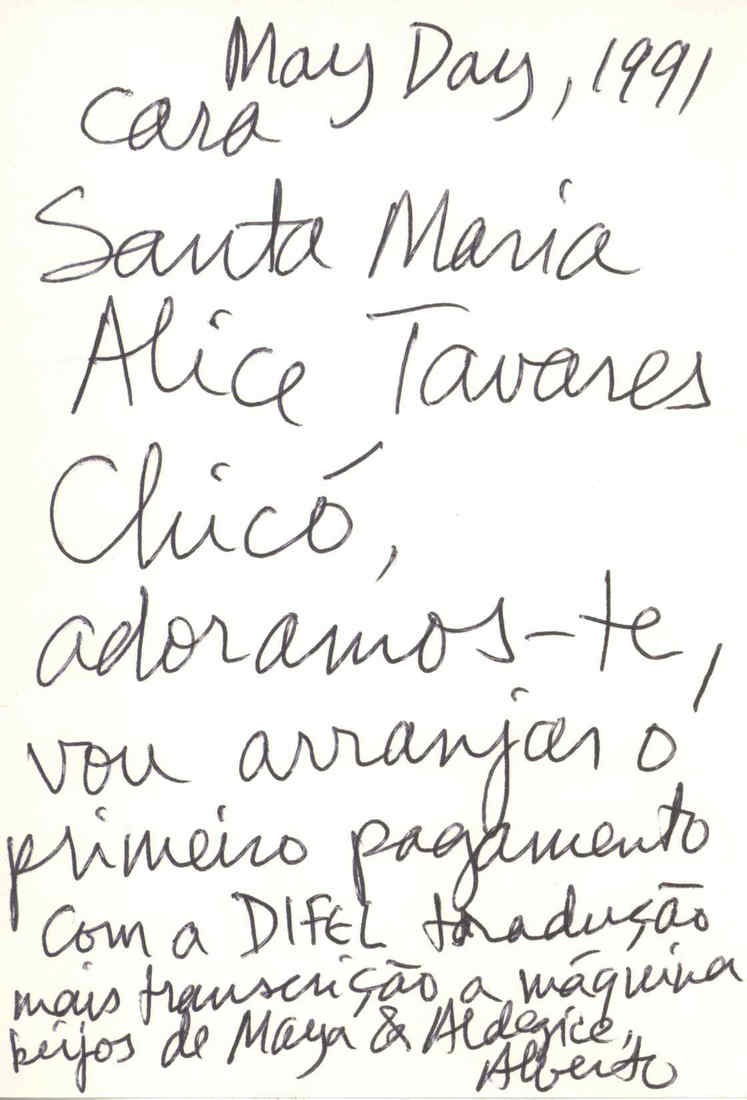 May Day, 1991
Cara
Santa Maria
Alice Tavares
Chicó,
adoramos-te,
vou arranjar o
primeiro pagamento
com a DIFEL tradução
mais transcrição a máquina
beijos de Maya & Aldegice,
Alberto